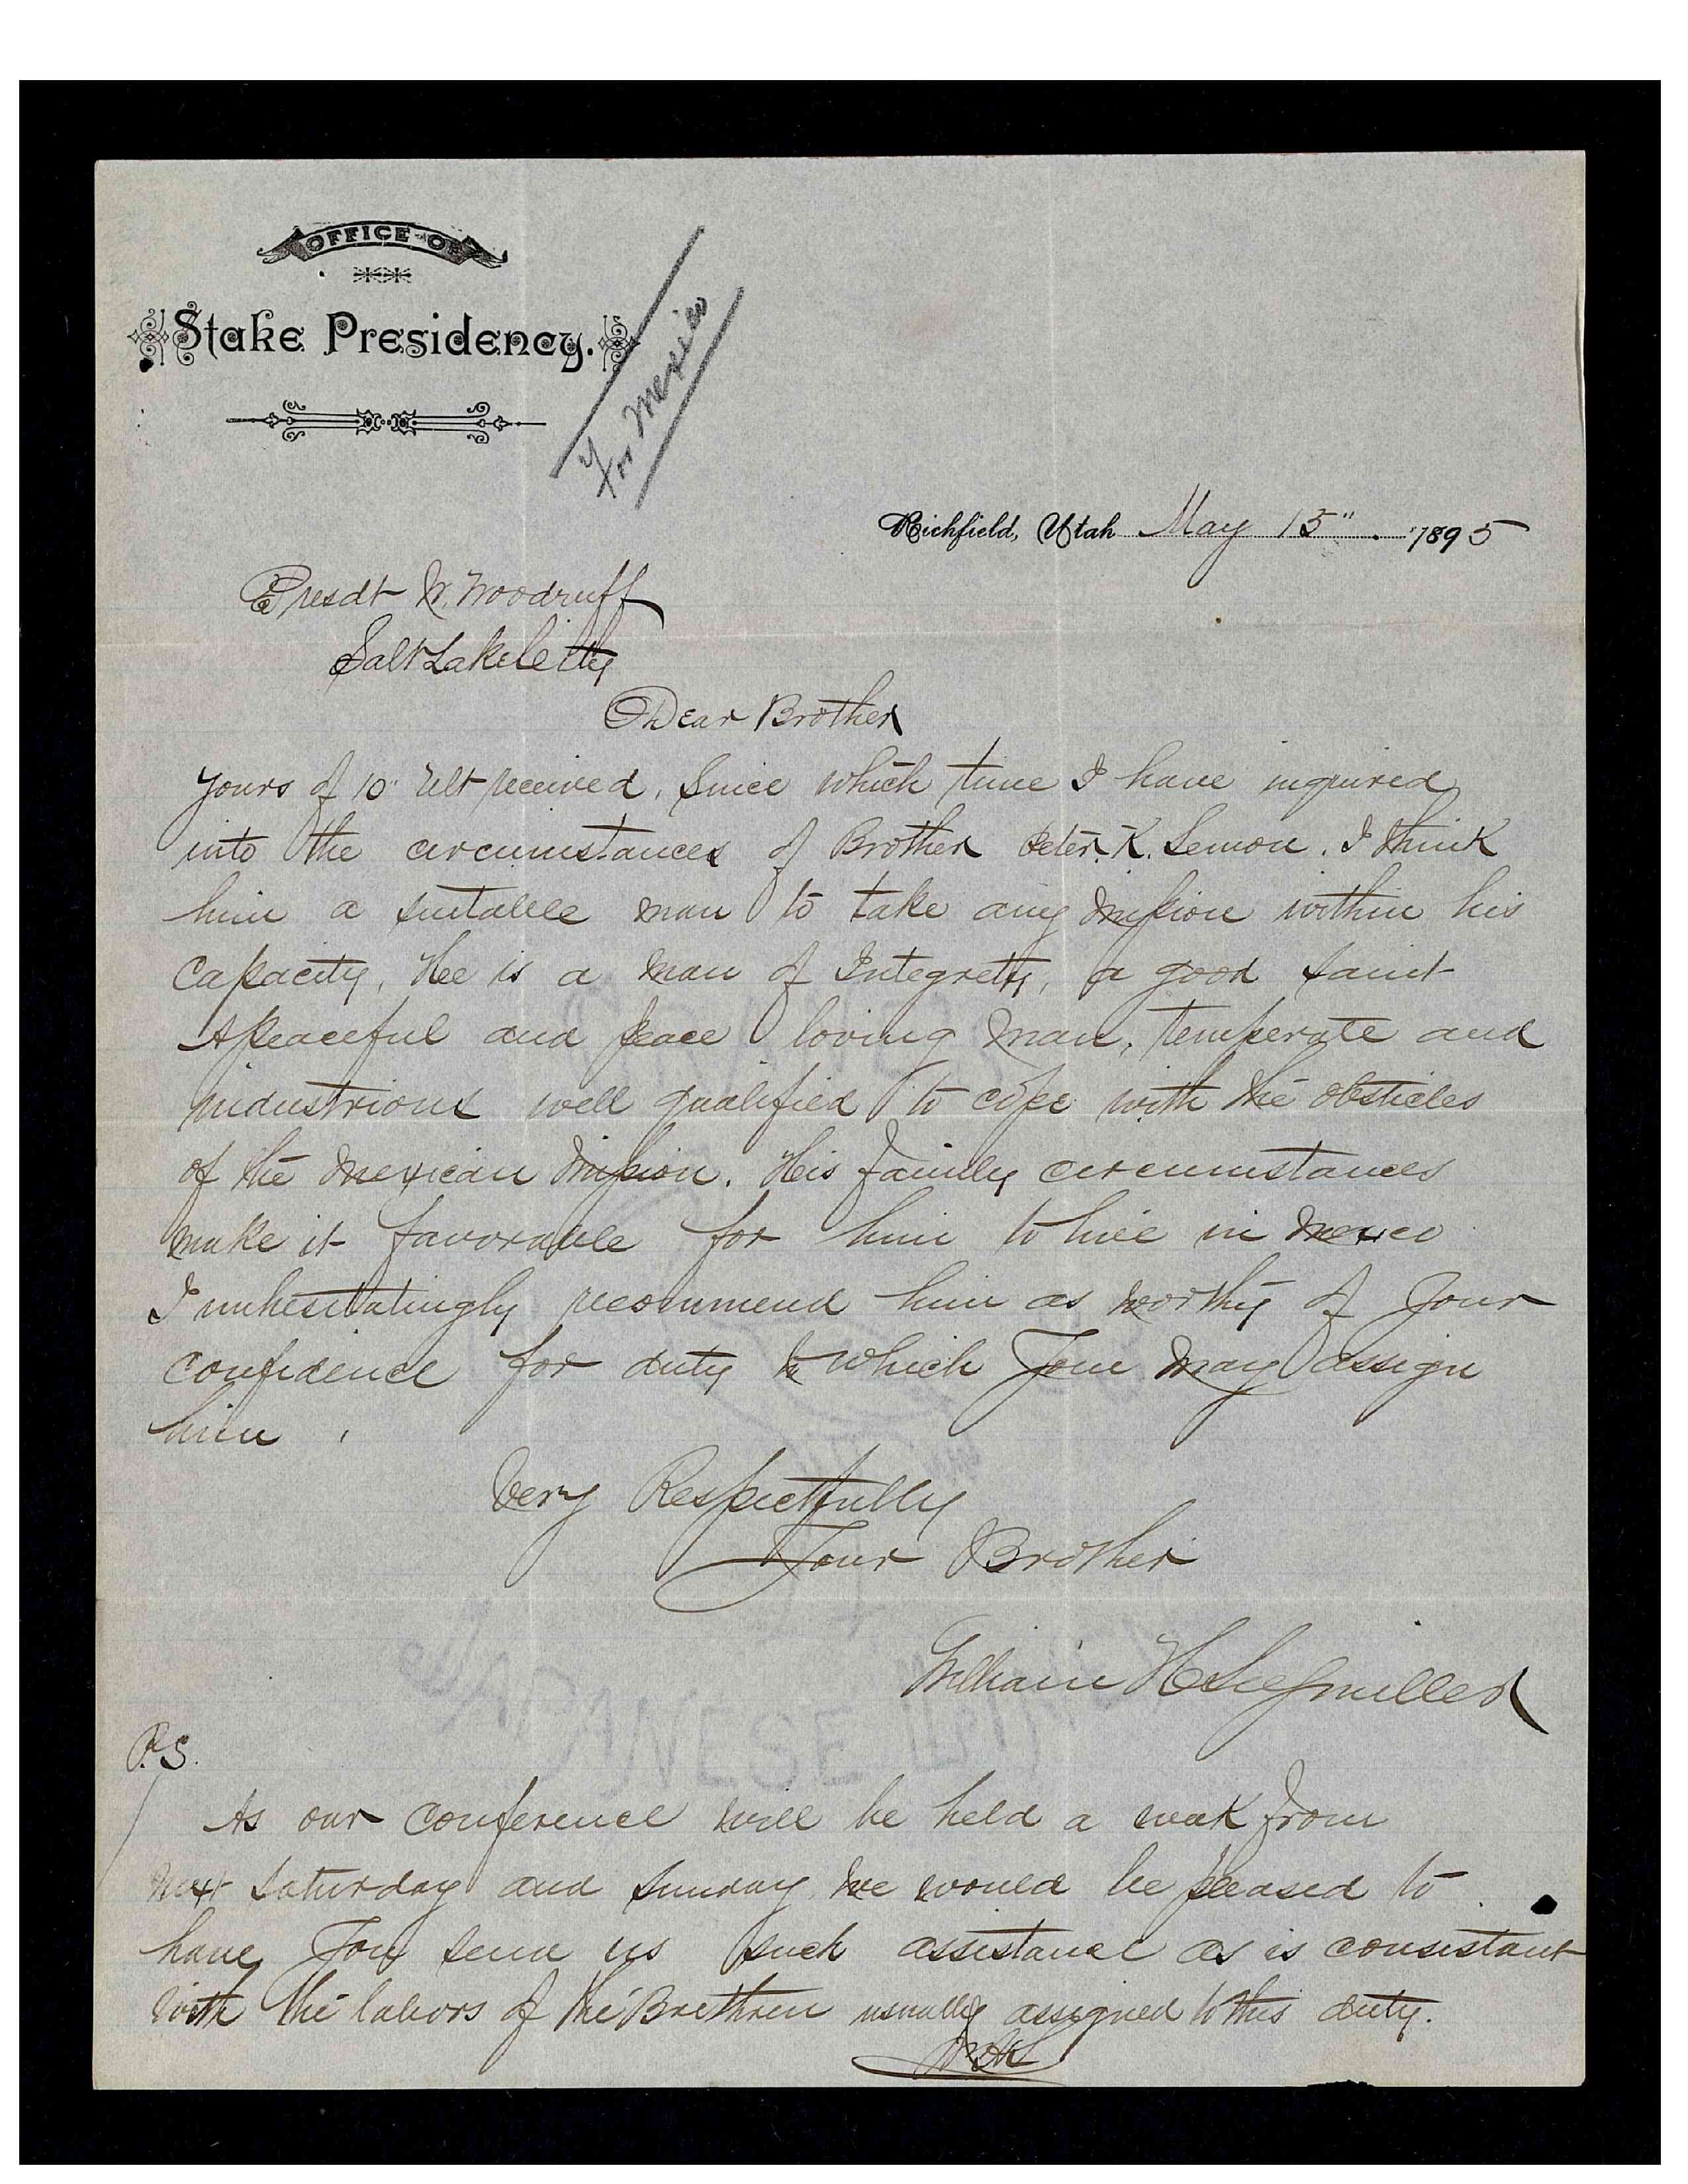 OFFICE OF
Stake Presidency.
For Mexico
Richfield, Utah May 15" 1895
Presdt W. Woodruff
Salt Lake City
Dear Brother
Yours of 10" Ult received, Since which time I have inquired
into the circumstances of Brother Peter. K. Lemon. I think
him a suitable man to take any Mission within his
Capacity, He is a Man of Integrety, a good saint
A peaceful and peace loving Man, temperate and
industrious well qualified to cope with the obsticles
of the Mexican Mission. His family circumstances
make it favorable for him to live in Mexico
I unhesitatingly recommend him as worthy of Your
confidence for duty to which You May assign
him.
Very Respectfully
Your Brother
William H Seegmiller
P.S.
As our conference will be held a week from
next Saturday and Sunday, We would be pleased to
have You send us such assistance as is consistant
with the labors of the Brethren usually assigned to this duty.
WHS